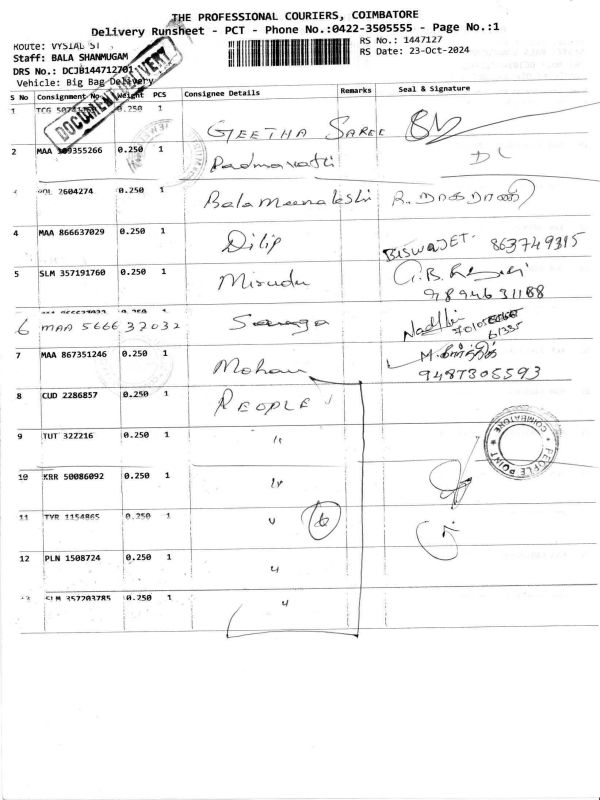 THE PROFESSIONAL COURIERS, COIMBATORE
Delivery Runsheet - PCT - Phone No.:0422-3505555 - Page No.:1
Route: VYSIAL ST
RS No.: 1447127
Staff: BALA SHANMUGAM
RS Date: 23-Oct-2024
DRS No.: DCJB144712701
Vehicle: Big Bag Delivery
DOCUMENT DELIVERY
S No Consignment No. Weight PCS Consignee Details Remarks Seal & Signature
1 TCG 0.250 1 GEETHA SAREE
2 MAA 0.250 1 Padmavathi DC
2604274 0.250 1 Balameenakshi R. நாகராணி
4 MAA 866637029 0.250 1 Dilip BISWAJET. 863749315
5 SLM 357191760 0.250 1 Mirudu
9894631188
6 MAA 5666 32032
7 MAA 867351246 0.250 1 Mohan
9487305593
8 CUD 2286857 0.250 1 PEOPLE
9 TUT 322216 0.250 1 "
PEOPLE POINT * COIMBATORE *
10 KRR 50086092 0.250 1 "
11 TYR 1154865 0.250 1 " 6
12 PLN 1508724 0.250 1 "
13 SLM 357203785 0.250 1 "